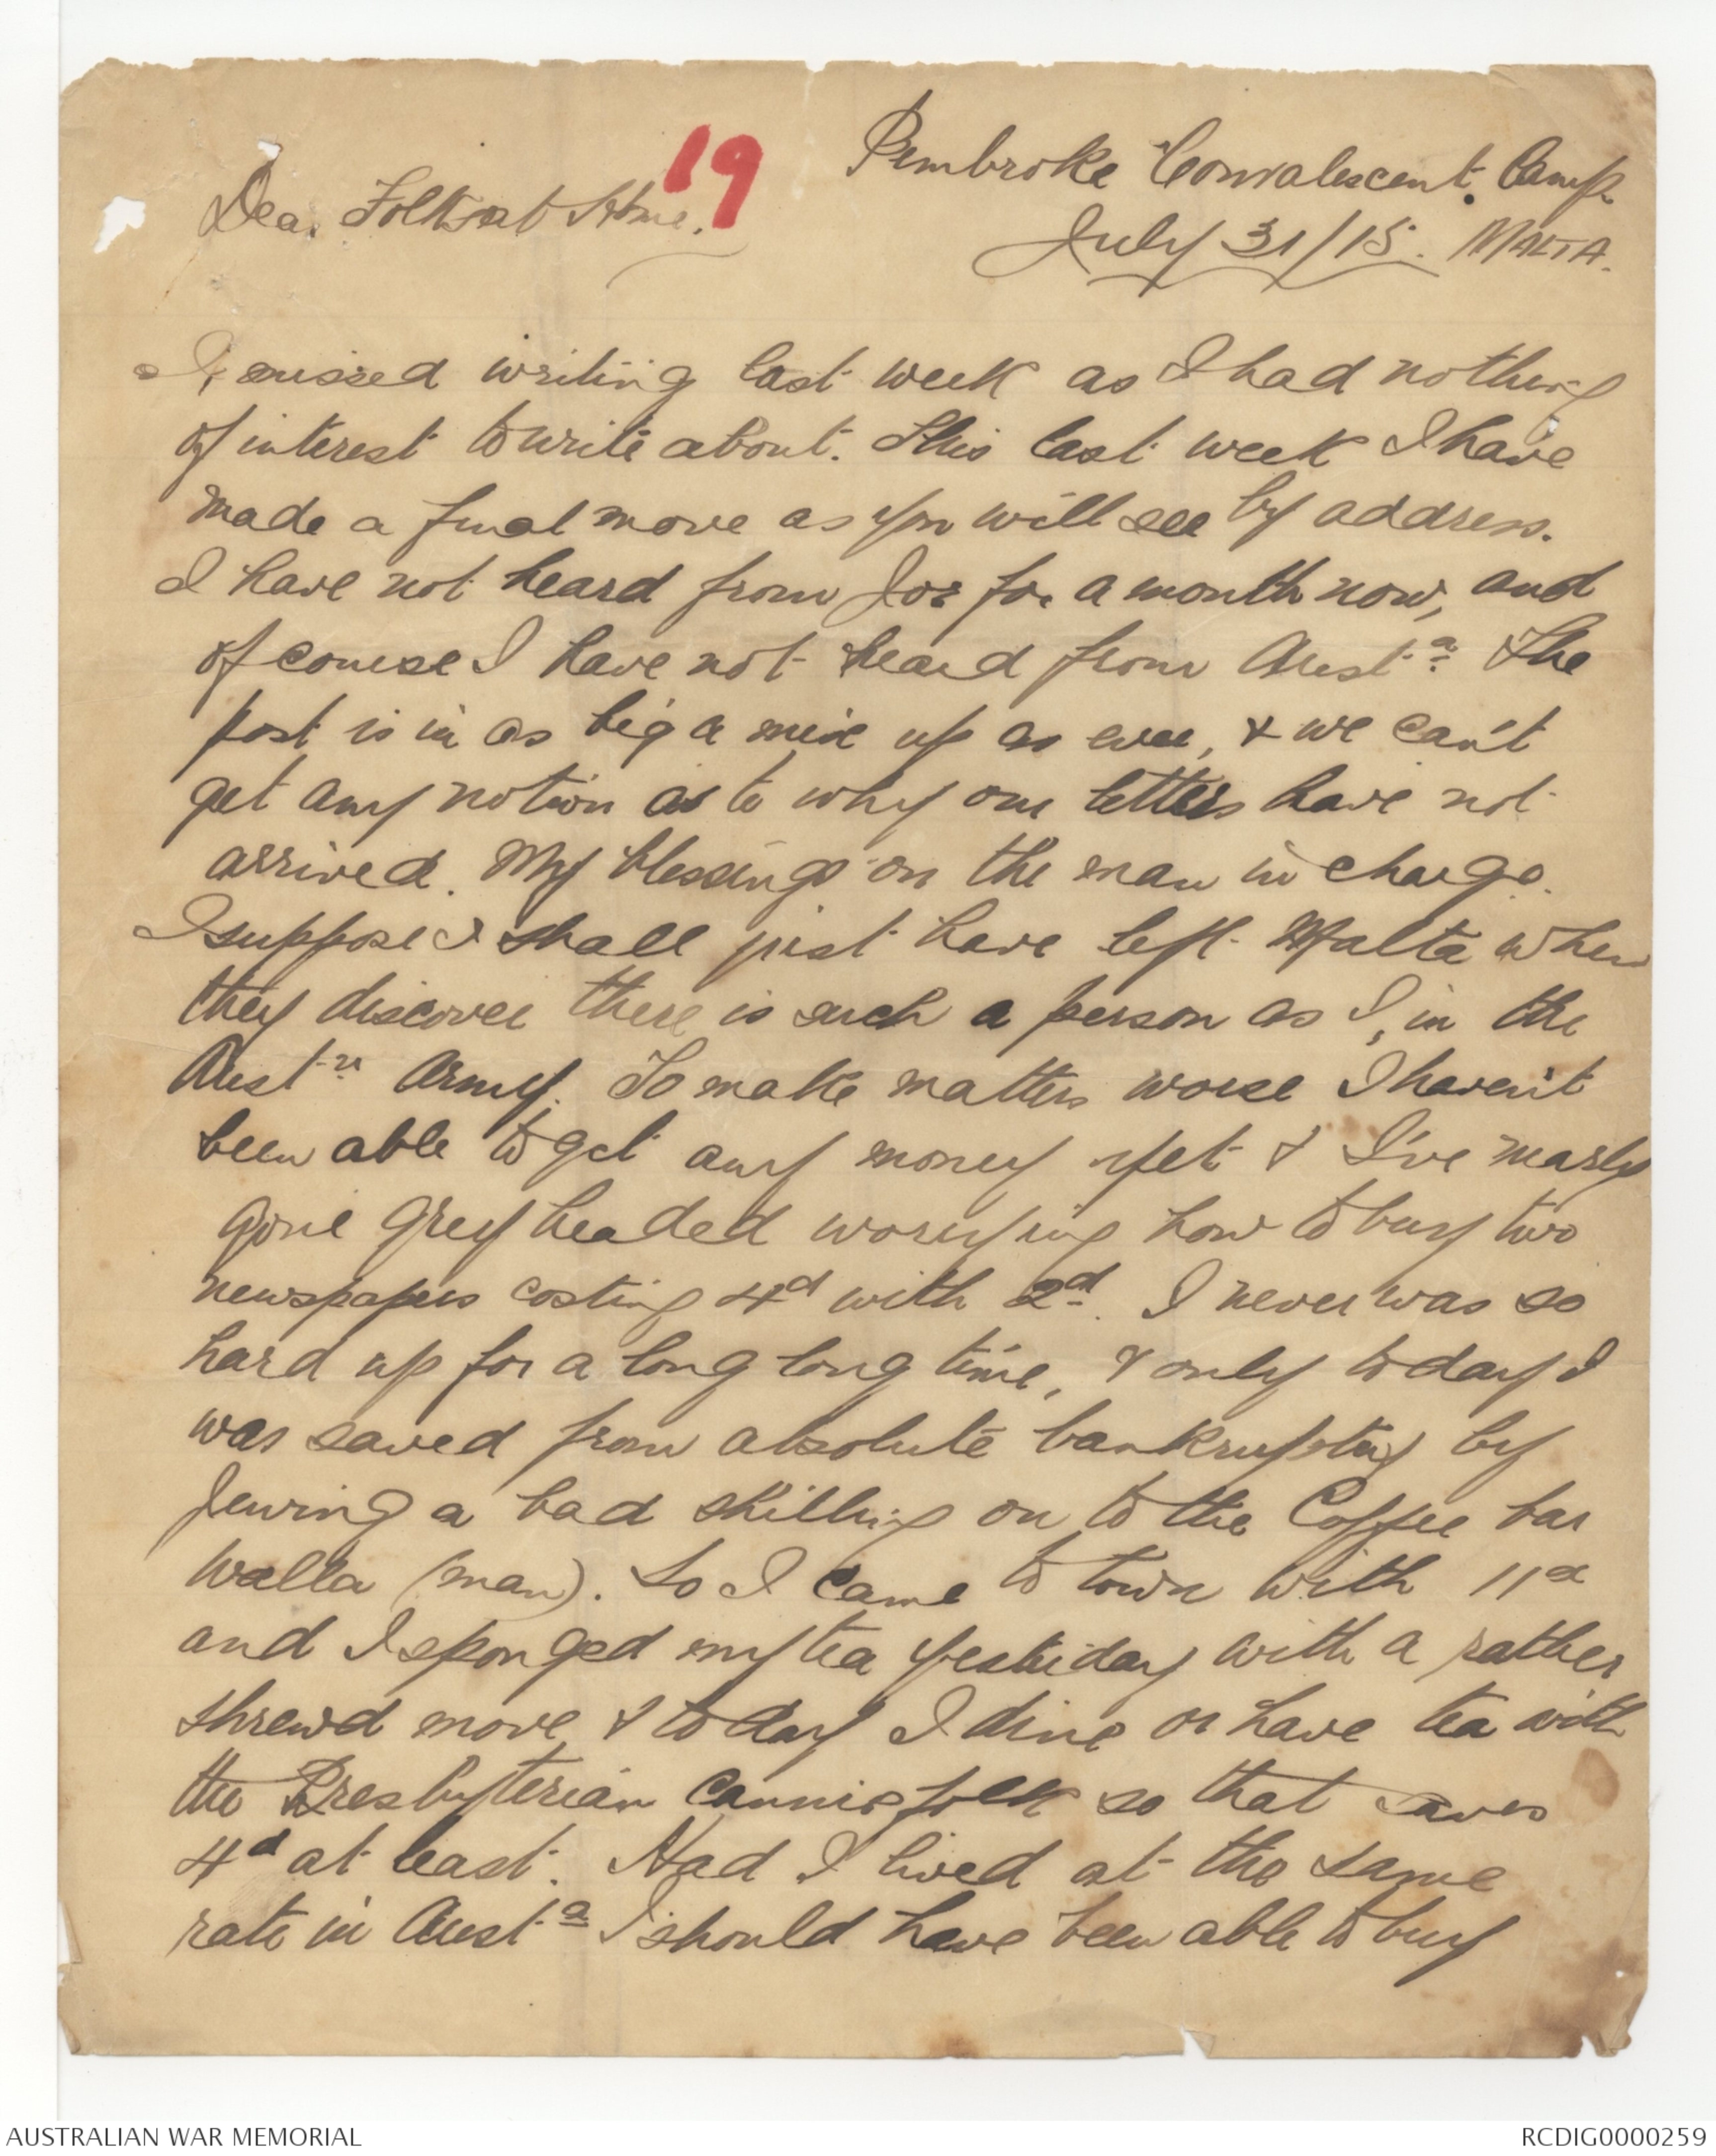 19
Pembroke Convalescent Camp
Dear Folks at Home.
July 31/15. MALTA.
I missed writing last week as I had nothing
of interest to write about. This last week I have
made a final move as you will see by address.
I have not heard from Joe for a month now, and
of course I have not heard from Austa. The
post is in as big a mix up as ever, & we can't
get any notion as to why our letters have not
arrived. My blessings on the man in charge.
I suppose I shall just have left Malta when
they discover there is such a person as I, in the
Austn Army. To make matters worse I haven't
been able to get any money yet & I've nearly
gone grey headed worrying how to buy two
newspapers costing 4d with 2d. I never was so
hard up for a long long time, & only today I
was saved from absolute bankruptcy by
Jewing a bad shilling on to the Coffee bar
Walla (man). So I came to town with 11d
and I sponged my tea yesterday with a rather
shrewd move & today I dine or have tea with
the Presbyterian Cannie folk so that saves
4d at least. Had I lived at the same
rate in Austa I should have been able to buy
AUSTRALIAN WAR MEMORIAL
RCDIG0000259